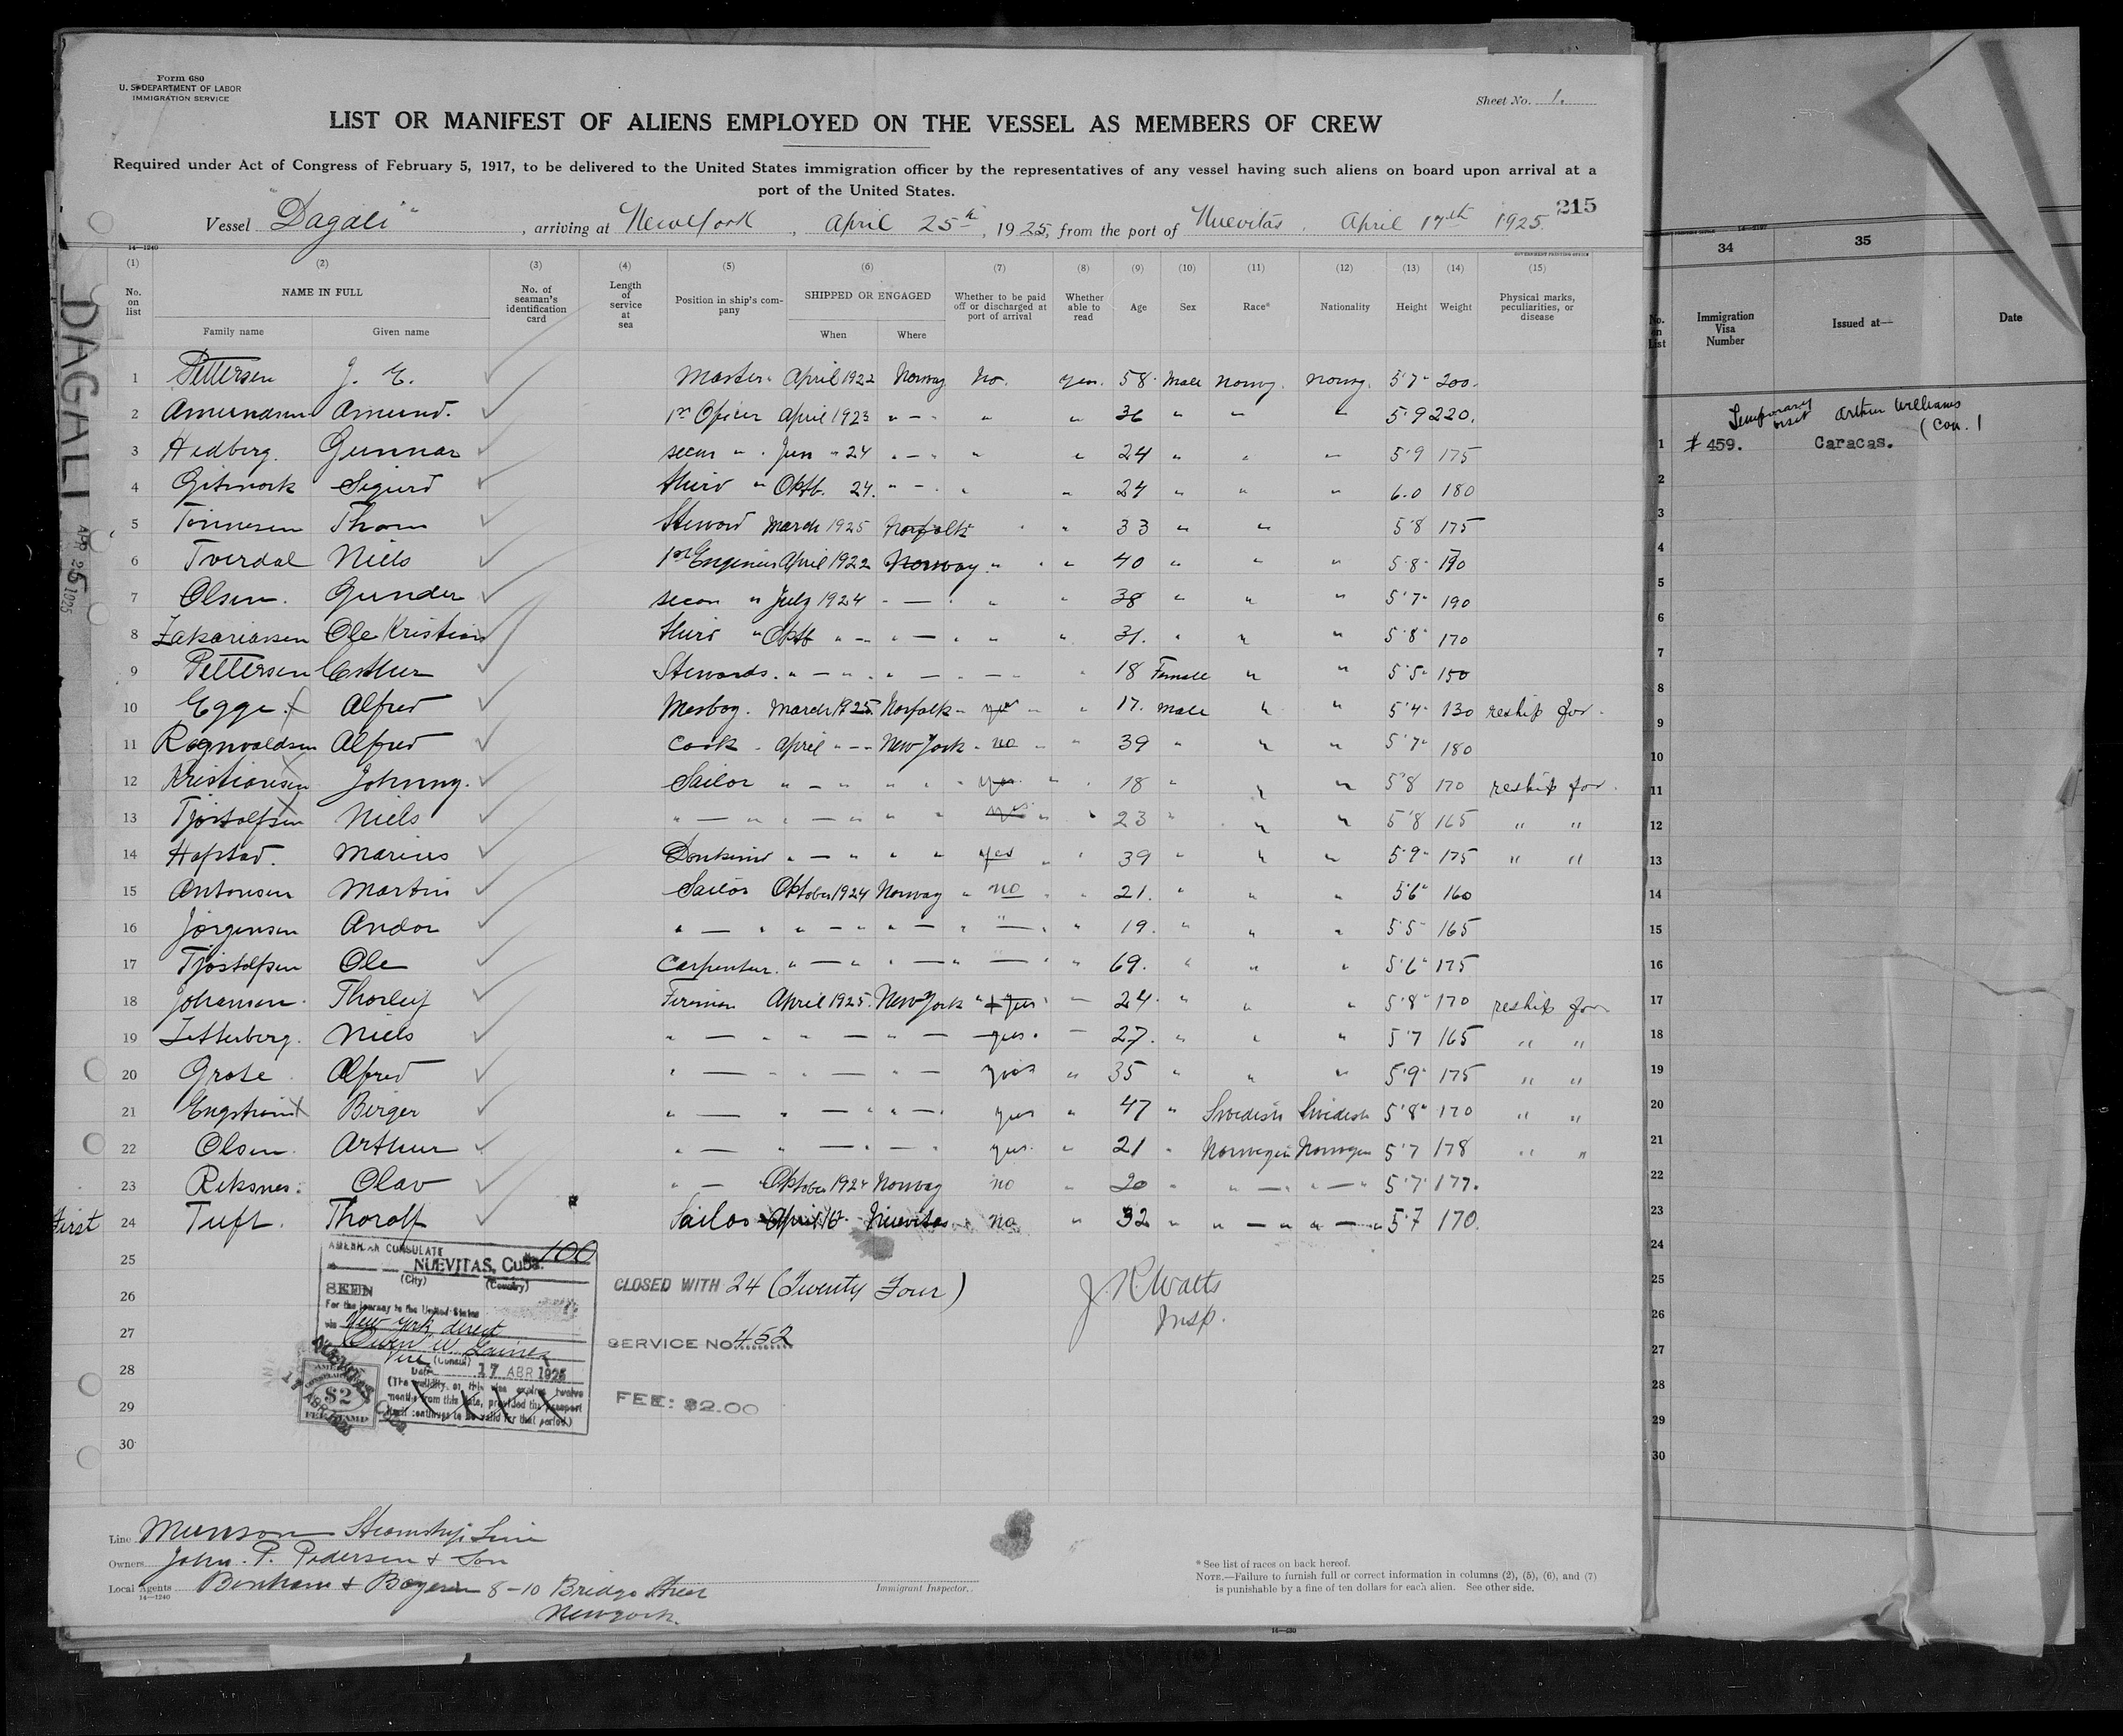 Form 680
U. S. DEPARTMENT OF LABOR
IMMIGRATION SERVICE
Sheet No. 1.
LIST OR MANIFEST OF ALIENS EMPLOYED ON THE VESSEL AS MEMBERS OF CREW
Required under Act of Congress of February 5, 1917, to be delivered to the United States immigration officer by the representatives of any vessel having such aliens on board upon arrival at a
port of the United States.
215
Vessel "Dagali", arriving at New York, April 25th, 1925, from the port of Nuevitas, April 17th 1925.
14—1240
GOVERNMENT PRINTING OFFICE
(1) (2) (3) (4) (5) (6) (7) (8) (9) (10) (11) (12) (13) (14) (15)
No. on list NAME IN FULL Family name Given name No. of seaman's identification card Length of service at sea Position in ship's company SHIPPED OR ENGAGED When Where Whether to be paid off or discharged at port of arrival Whether able to read Age Sex Race* Nationality Height Weight Physical marks, peculiarities, or disease
1 Pettersen J. E. Master. April 1922 Norway No. yes. 58. Male Norwg. Norwg. 5'7" 200.
2 Amundsen Amund. 1st Oficer April 1923 " — " " " 36 " " " 5'9 220.
3 Hedberg. Gunnar secon " Jun " 24 " — " " " 24 " " " 5'9 175
4 Sigurd third " Oktb. 24. " — " " " 24 " " " 6.0 180
5 Tonnesen Thom Steward March 1925 Norfolk " " 33 " " 5'8 175
6 Tverdal Niels 1st Enginier April 1922 Norway " " 40 " " " 5'8" 190
7 Olsen. Gunder secon " July 1924 " — " " " 38 " " " 5'7" 190
8 Zakariassen Ole Kristian third " Oktb " — " — " " " 31. " " " 5'8" 170
9 Pettersen Esther Stewards. " — " " — " — " 18 Female " " 5'5" 150
10 Egge. Alfred Mesboy. March 1925. Norfolk " yes " " 17. male " " 5'4" 130 reship for.
11 Rognvaldsen Alfred Cook. April " — " New York " no " " 39 " " " 5'7" 180
12 Kristiansen Johnny. Sailor " — " " " yes. " " 18 " " " 5'8 170 reship for.
13 Tjostolfsen Niels " — " " — " " " yes " " 23 " " " 5'8 165 " "
14 Hafstad. Marius Donkimd " — " " " yes " " 39 " " " 5'9" 175 " "
15 Antonsen Martin Sailor Oktober 1924 Norway " no " " 21. " " " 5'6" 160
16 Jørgensen Andor " — " " — " " — " " — " " 19. " " " 5'5" 165
17 Tjøstolfsen Ole Carpentur. " — " " — " — " " 69. " " " 5'6" 175
18 Johansen. Thorleif Fireman April 1925. New York " yes " — 24. " " " 5'8" 170 reship for
19 Zetterberg. Niels " — " " — " — yes. — 27. " " " 5'7 165 " "
20 Grose Alfred " — " " — " — yes " 35 " " " 5'9" 175 " "
21 Engstrøm Birger " — " — " " — yes " 47 " Swedish Swedish 5'8" 170 " "
22 Olsen. Arthur " — " " — " — " yes. " 21 " Norwegin Norwegen 5'7 178 " "
23 Reksnes. Olav " — Oktober 1924 Norway no " 20 " " — " " — " 5'7" 177.
First 24 Tuft. Thorolf Sailor April 17 Nuevitas " no " 32 " " — " " — " 5'7 170.
25
26
27
28
29
30
AMERICAN CONSULATE
No. 100
NUEVITAS, Cuba.
(City) (Country)
SEEN
For the journey to the United States
via New York direct
Vice (Consul)
Date 17 ABR 1925
(The validity of this visa expires twelve
months from this date, provided the passport
itself continues to be valid for that period.)
AMERICAN
$2
FEE STAMP
CLOSED WITH 24 (Twenty Four)
SERVICE NO. 452
FEE: $2.00
J. R. Watts
Insp.
Line Munson Steamship Line
Owners John. P. Pedersen & Son
Local Agents Benham & Boyesen 8–10 Bridge Street
New York.
14—1240
Immigrant Inspector.
* See list of races on back hereof.
NOTE.—Failure to furnish full or correct information in columns (2), (5), (6), and (7)
is punishable by a fine of ten dollars for each alien. See other side.
DAGALI APR 25 1925
34 35
No. on List Immigration Visa Number Issued at— Date
Temporary visit Arthur Williams (Con.)
1 # 459. Caracas.
2
3
4
5
6
7
8
9
10
11
12
13
14
15
16
17
18
19
20
21
22
23
24
25
26
27
28
29
30